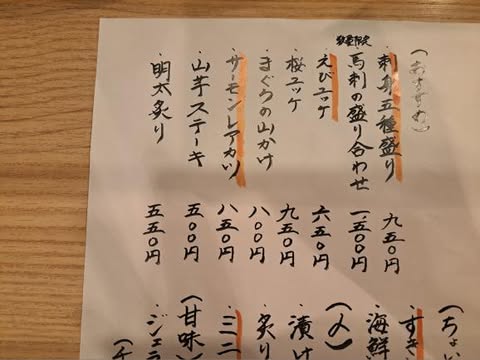 (おすすめ)
・刺身五種盛り 九五〇円
数量限定
・馬刺の盛り合わせ 一.五〇〇円
・えびユッケ 六五〇円
・桜ユッケ 九五〇円
・まぐろの山かけ 八〇〇円
・サーモンレアカツ 八五〇円
・山芋ステーキ 五〇〇円
・明太炙り 五五〇円
(ちょ
・すき
・海鮮
(〆)
・漬け
・炙り
・ミニ
(甘味)
・ジェラ